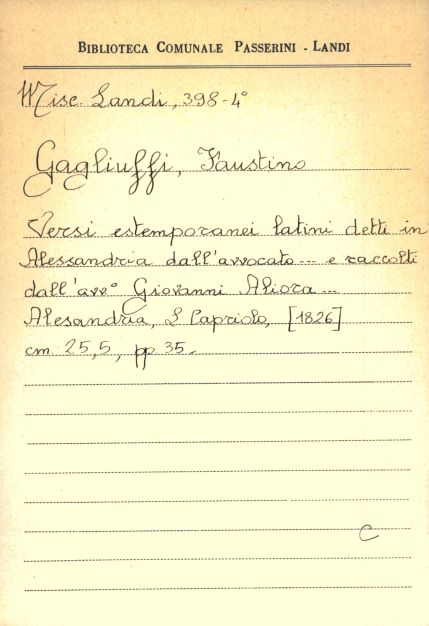 BIBLIOTECA COMUNALE PASSERINI - LANDI
Misc. Landi, 398-4°
Gagliuffi, Faustino
Versi estemporanei latini detti in
Alessandria dall'avvocato... e raccolti
dall'avv° Giovanni Aliora...
Alesandria, L Capriolo, [1826]
cm 25,5, pp 35.
C